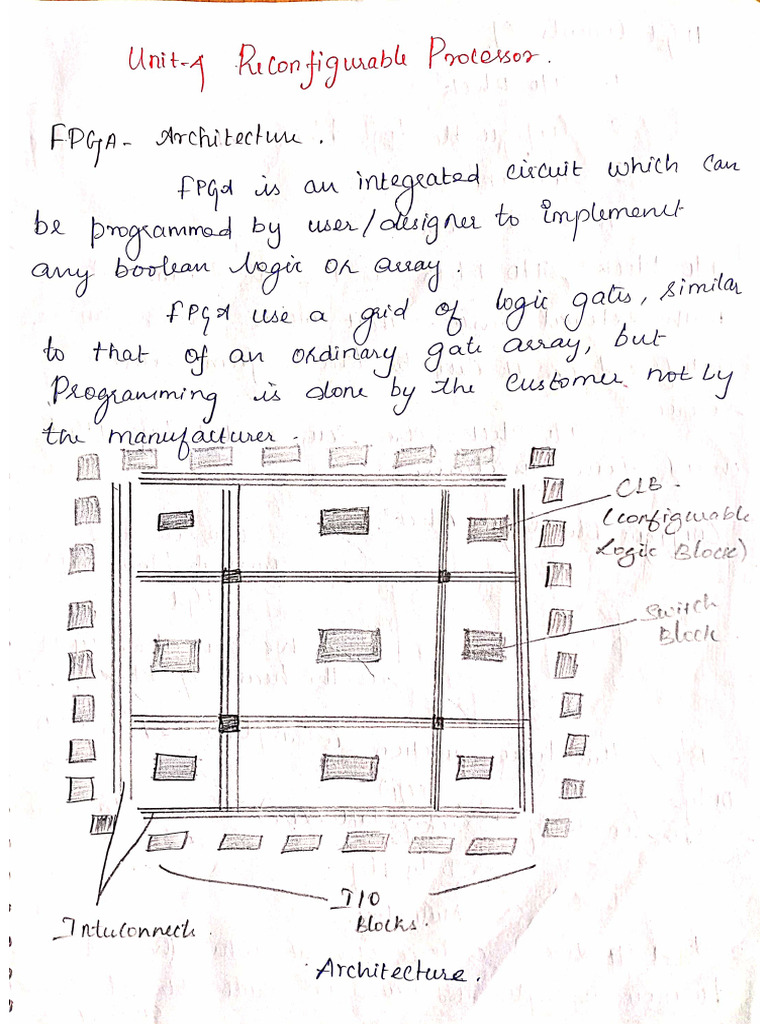 Unit-4 Reconfigurable Processor.
FPGA- Architecture.
FPGA is an integrated circuit which can
be programmed by user/designer to implement
any boolean logic or array.
FPGA use a grid of logic gates, similar
to that of an ordinary gate array, but
Programming is done by the customer not by
the manufacturer.
CLB -
(configurable
Logic Block)
Switch
Block
I/O
Blocks.
Interconnect.
Architecture.